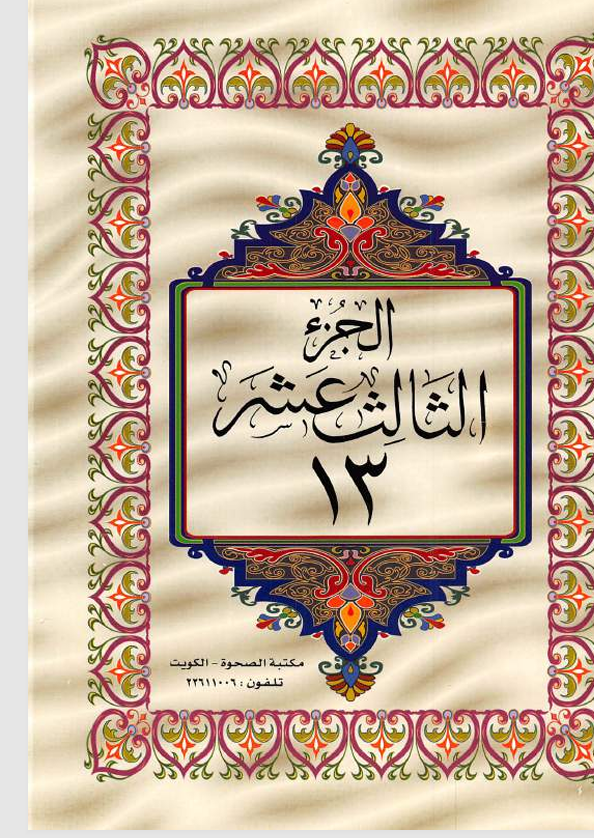 الجُزء
الثَالِث عَشَر
١٣
مكتبة الصحوة - الكويت
تلفون : ٢٢٦١١٠٠٦